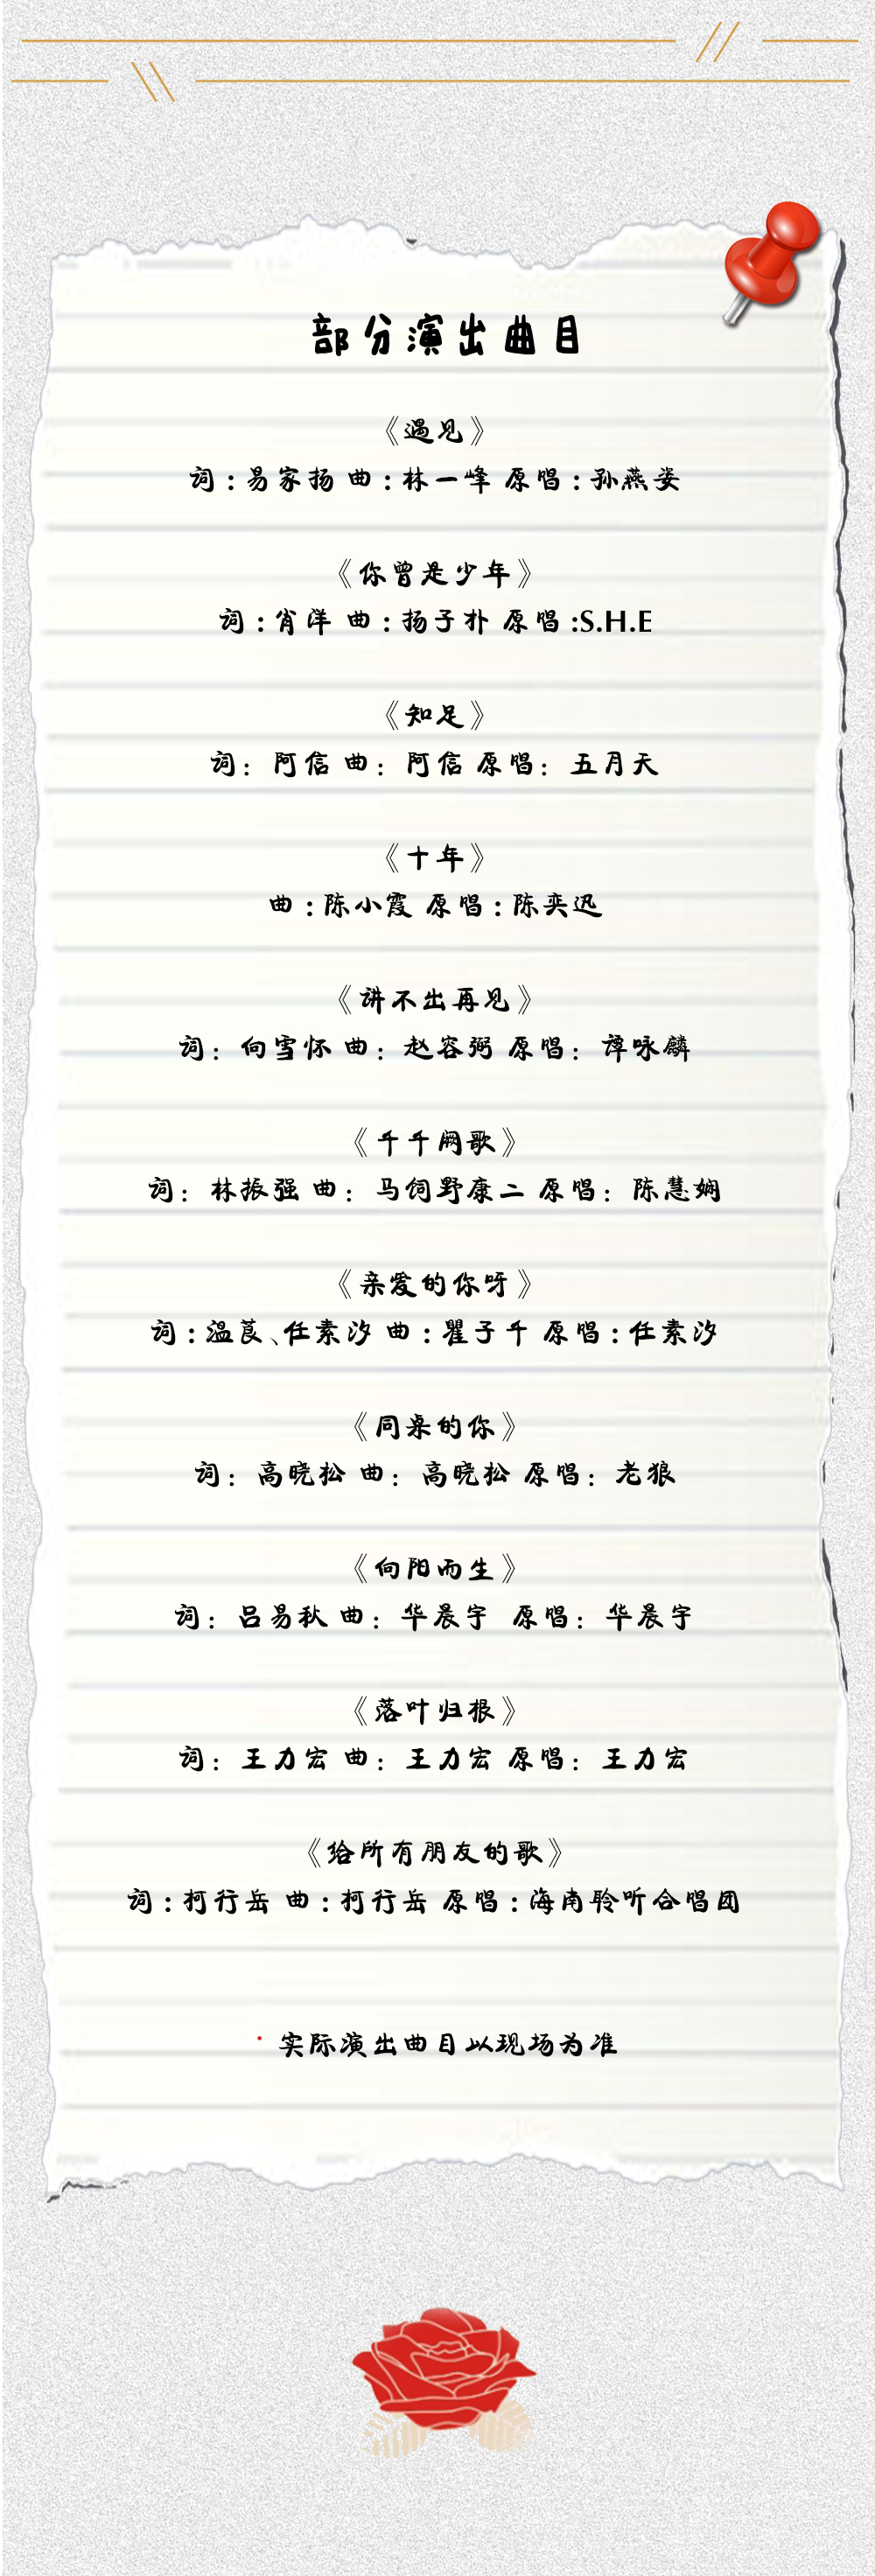 部分演出曲目
《遇见》
词:易家扬 曲:林一峰 原唱:孙燕姿
《你曾是少年》
词:肖洋 曲:扬子朴 原唱:S.H.E
《知足》
词：阿信 曲：阿信 原唱：五月天
《十年》
曲:陈小霞 原唱:陈奕迅
《讲不出再见》
词：向雪怀 曲：赵容弼 原唱：谭咏麟
《千千阙歌》
词：林振强 曲：马饲野康二 原唱：陈慧娴
《亲爱的你呀》
词:温莨、任素汐 曲:瞿子千 原唱:任素汐
《同桌的你》
词：高晓松 曲：高晓松 原唱：老狼
《向阳而生》
词：吕易秋 曲：华晨宇 原唱：华晨宇
《落叶归根》
词：王力宏 曲：王力宏 原唱：王力宏
《给所有朋友的歌》
词:柯行岳 曲:柯行岳 原唱:海南聆听合唱团
实际演出曲目以现场为准